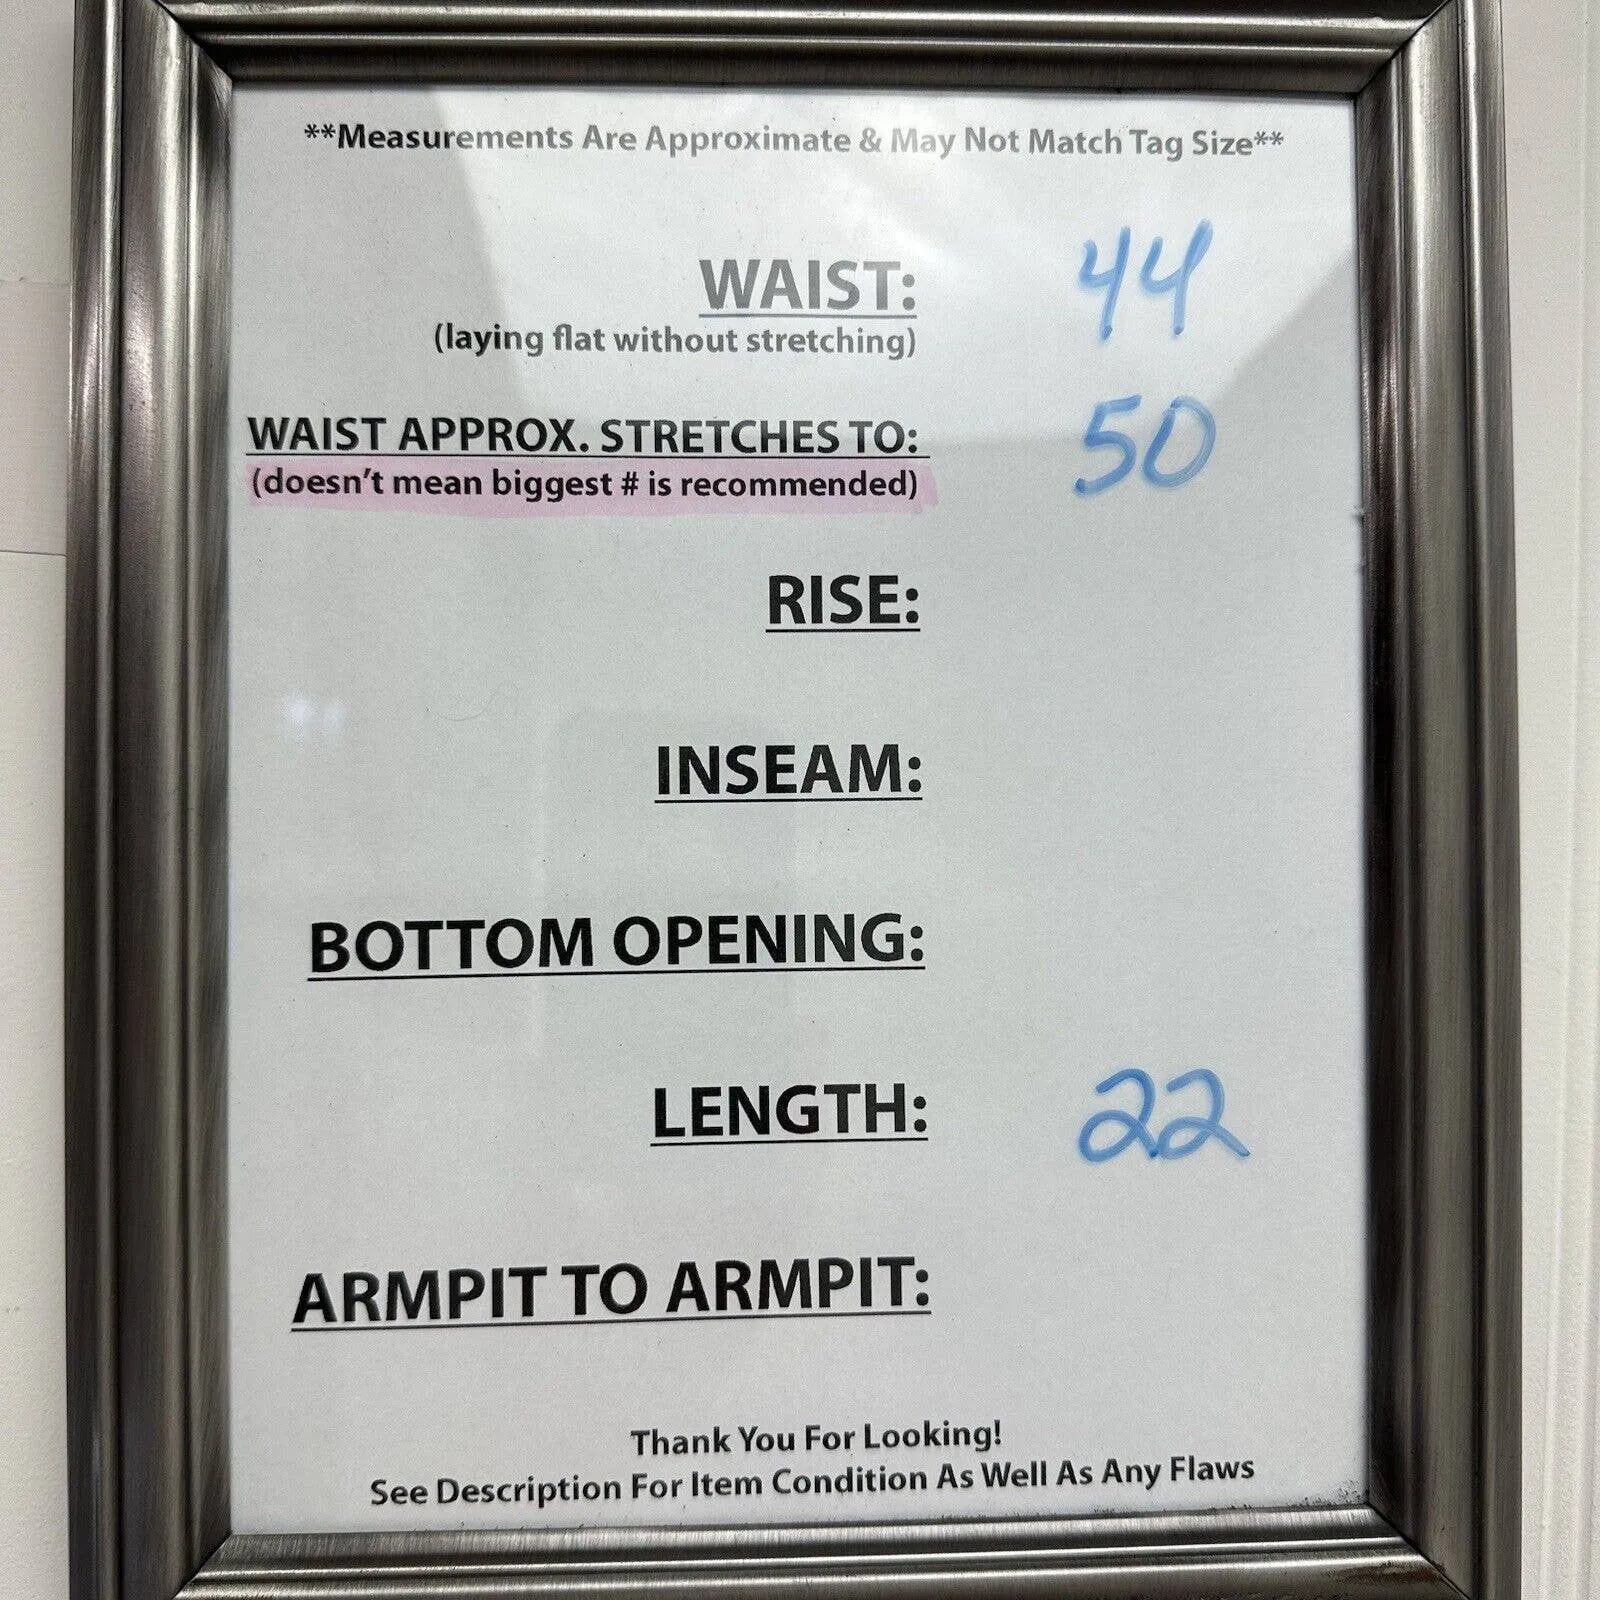 **Measurements Are Approximate & May Not Match Tag Size**
WAIST: 44
(laying flat without stretching)
WAIST APPROX. STRETCHES TO: 50
(doesn't mean biggest # is recommended)
RISE:
INSEAM:
BOTTOM OPENING:
LENGTH: 22
ARMPIT TO ARMPIT:
Thank You For Looking!
See Description For Item Condition As Well As Any Flaws